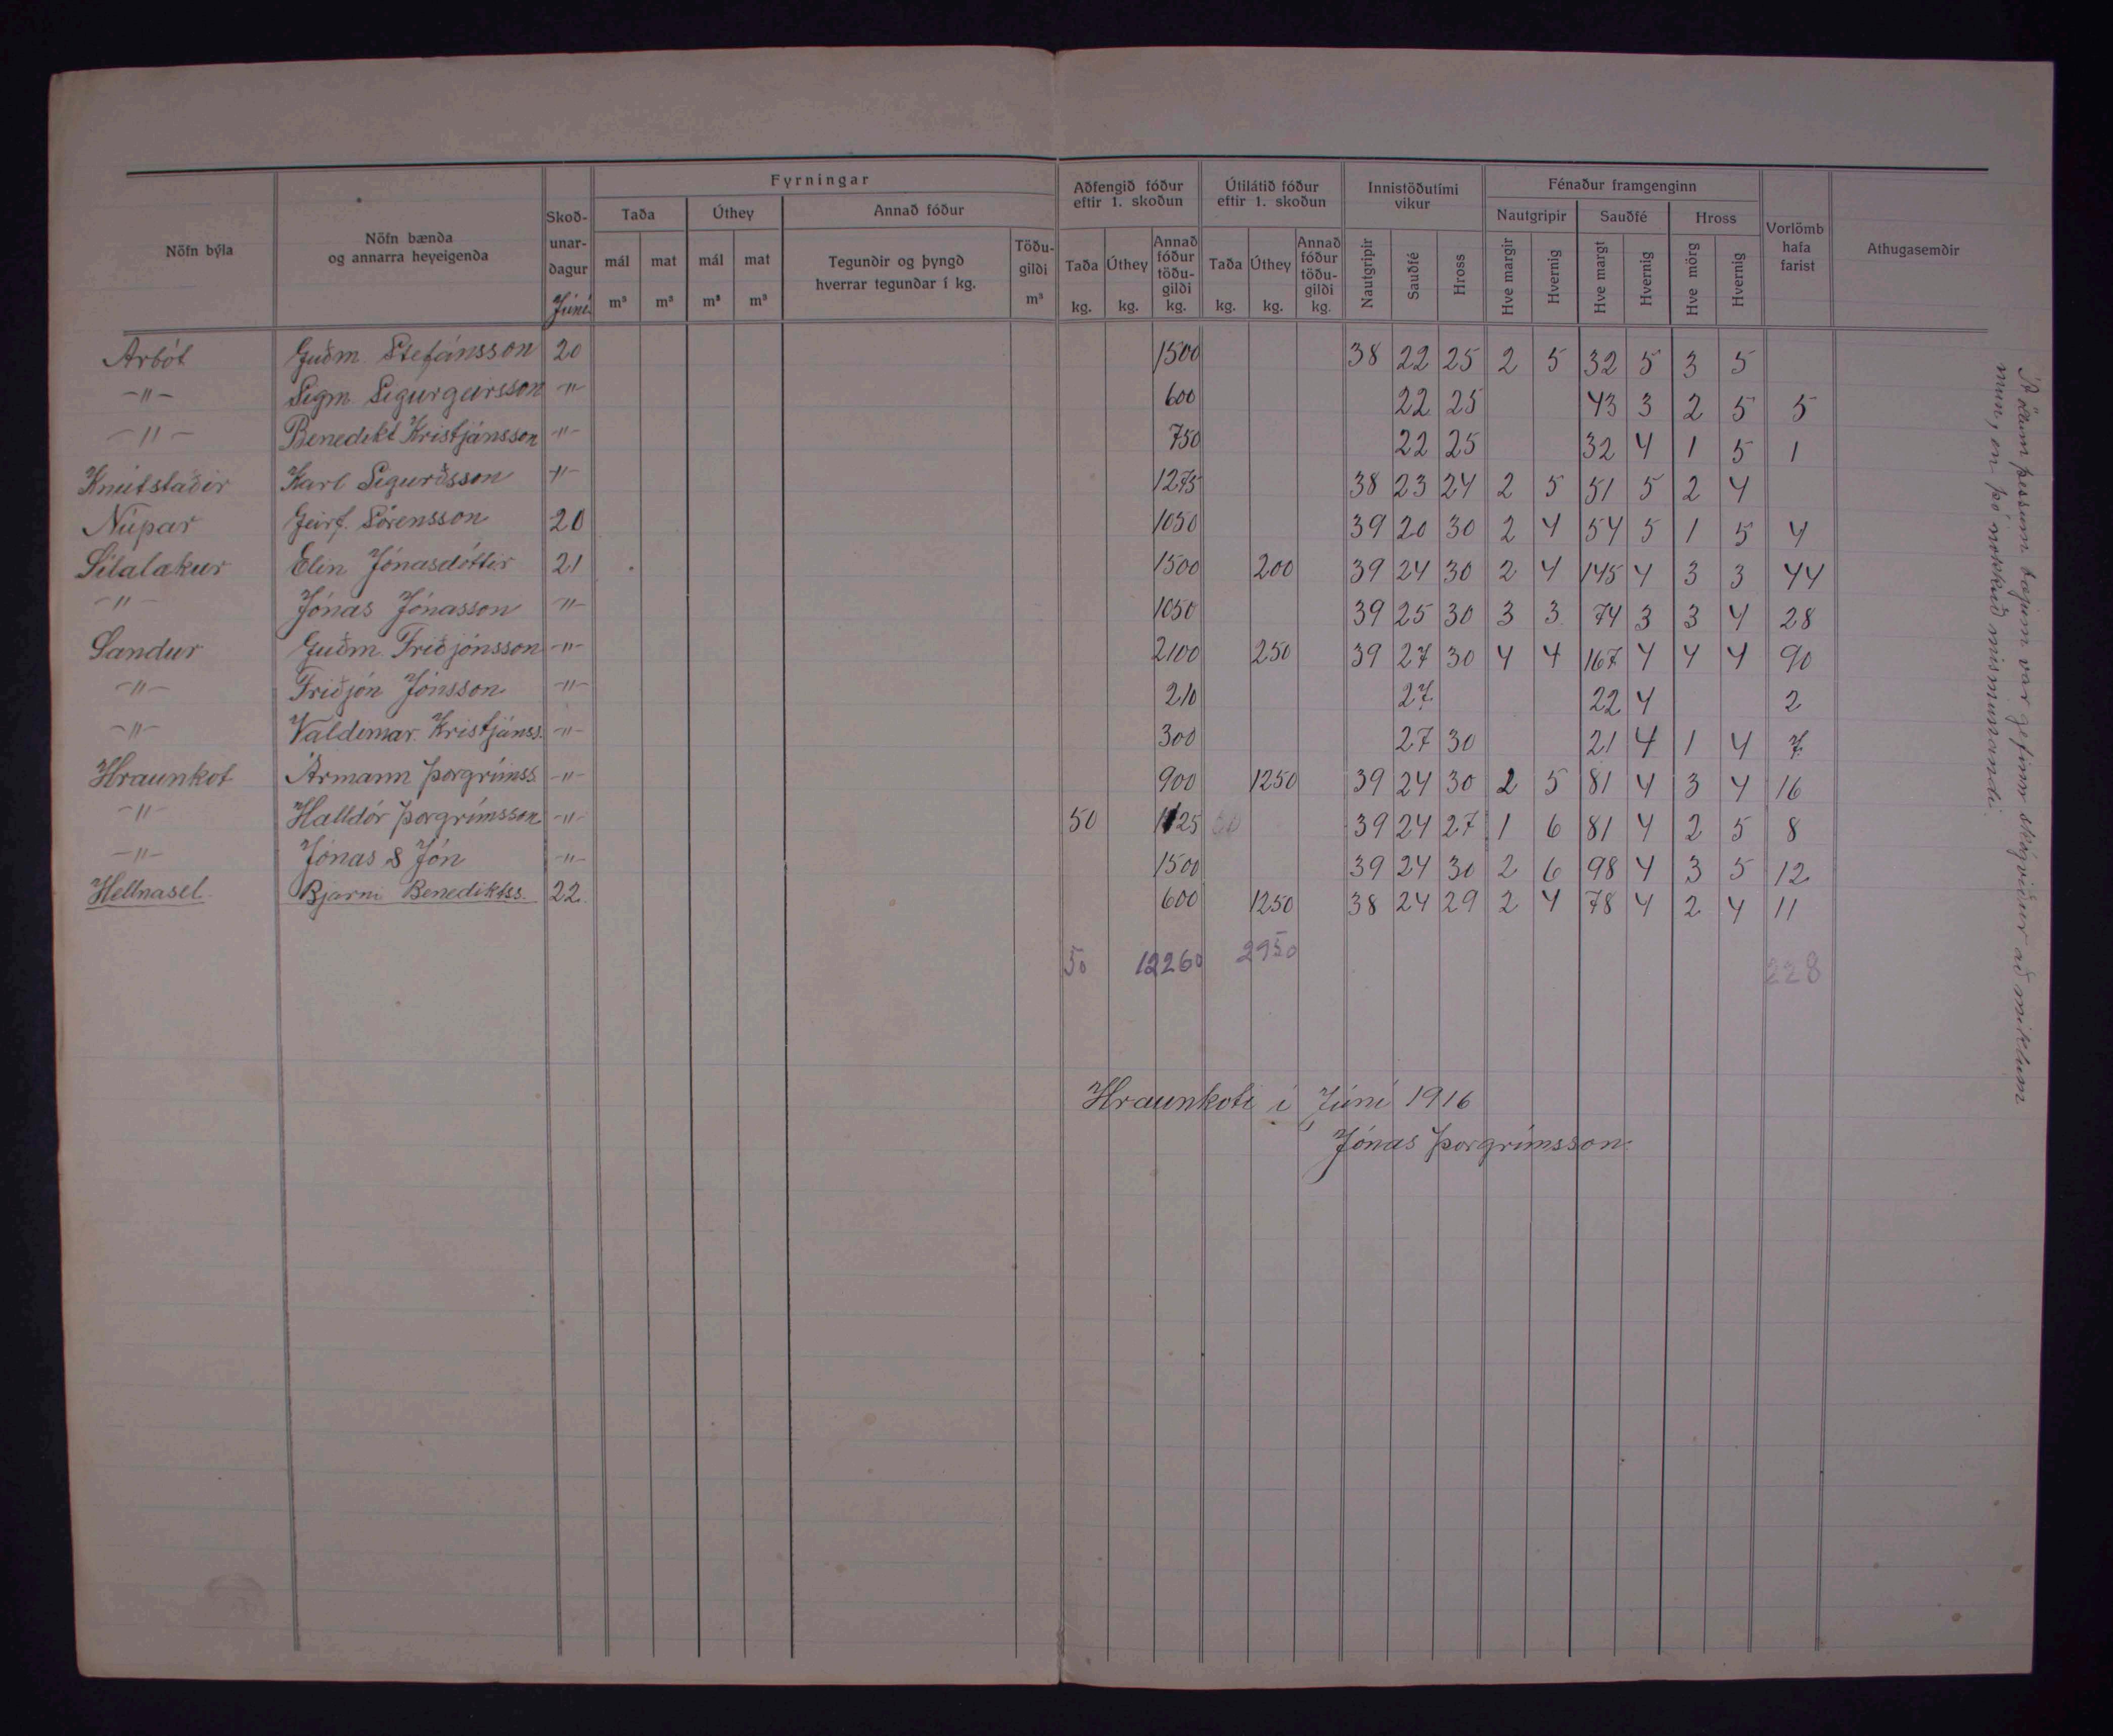 Fyrningar
Aðfengið fóður eftir 1. skoðun
Útilátið fóður eftir 1. skoðun
Innistöðutími vikur
Fénaður framgenginn
Nöfn býla
Nöfn bænda og annarra heyeigenda
Skoð-unar-dagur Júní
Taða
Úthey
Annað fóður
Nautgripir
Sauðfé
Hross
Vorlömb hafa farist
Athugasemdir
mál m³ mat m³ mál m³ mat m³
Tegundir og þyngd hverrar tegundar í kg.
Töðu-gildi m³
Taða kg. Úthey kg. Annað fóður töðu-gildi kg.
Taða kg. Úthey kg. Annað fóður töðu-gildi kg.
Nautgripir Sauðfé Hross
Hve margir Hvernig Hve margt Hvernig Hve mörg Hvernig
Arbót Guðm. Stefánsson 20 1500 38 22 25 2 5 32 5 3 5
-"- Sigm Sigurgeirsson -"- 600 22 25 43 3 2 5 5
-"- Benedikt Kristjánsson -"- 750 22 25 32 4 1 5 1
Knútstaðir Karl Sigurðsson -"- 1275 38 23 24 2 5 51 5 2 4
Núpar Geirf. Sörensson 20 1050 39 20 30 2 4 54 5 1 5 4
Sílalakur Elin Jónasdóttir 21 1500 200 39 24 30 2 4 145 4 3 3 44
-"- Jónas Jónasson -"- 1050 39 25 30 3 3 74 3 3 4 28
Sandur Guðm. Friðjónsson -"- 2100 250 39 27 30 4 4 167 4 4 4 90
-"- Friðjón Jónsson -"- 210 27 22 4 2
-"- Valdimar Kristjánss. -"- 300 27 30 21 4 1 4 7
Hraunkot Ármann Þorgrímss. -"- 900 1250 39 24 30 2 5 81 4 3 4 16
-"- Halldór Þorgrímsson -"- 50 25 39 24 27 1 6 81 4 2 5 8
-"- Jónas & Jón -"- 1500 39 24 30 2 6 98 4 3 5 12
Hellnasel Bjarni Benediktss. 22 600 1250 38 24 29 2 4 78 4 2 4 11
50 12260 2950 228
Hraunkoti í Júní 1916
Jónas Þorgrímsson
Á öllum þessum bæjum var gefinn skógviður að miklum
mun, en þó nokkuð mismunandi.